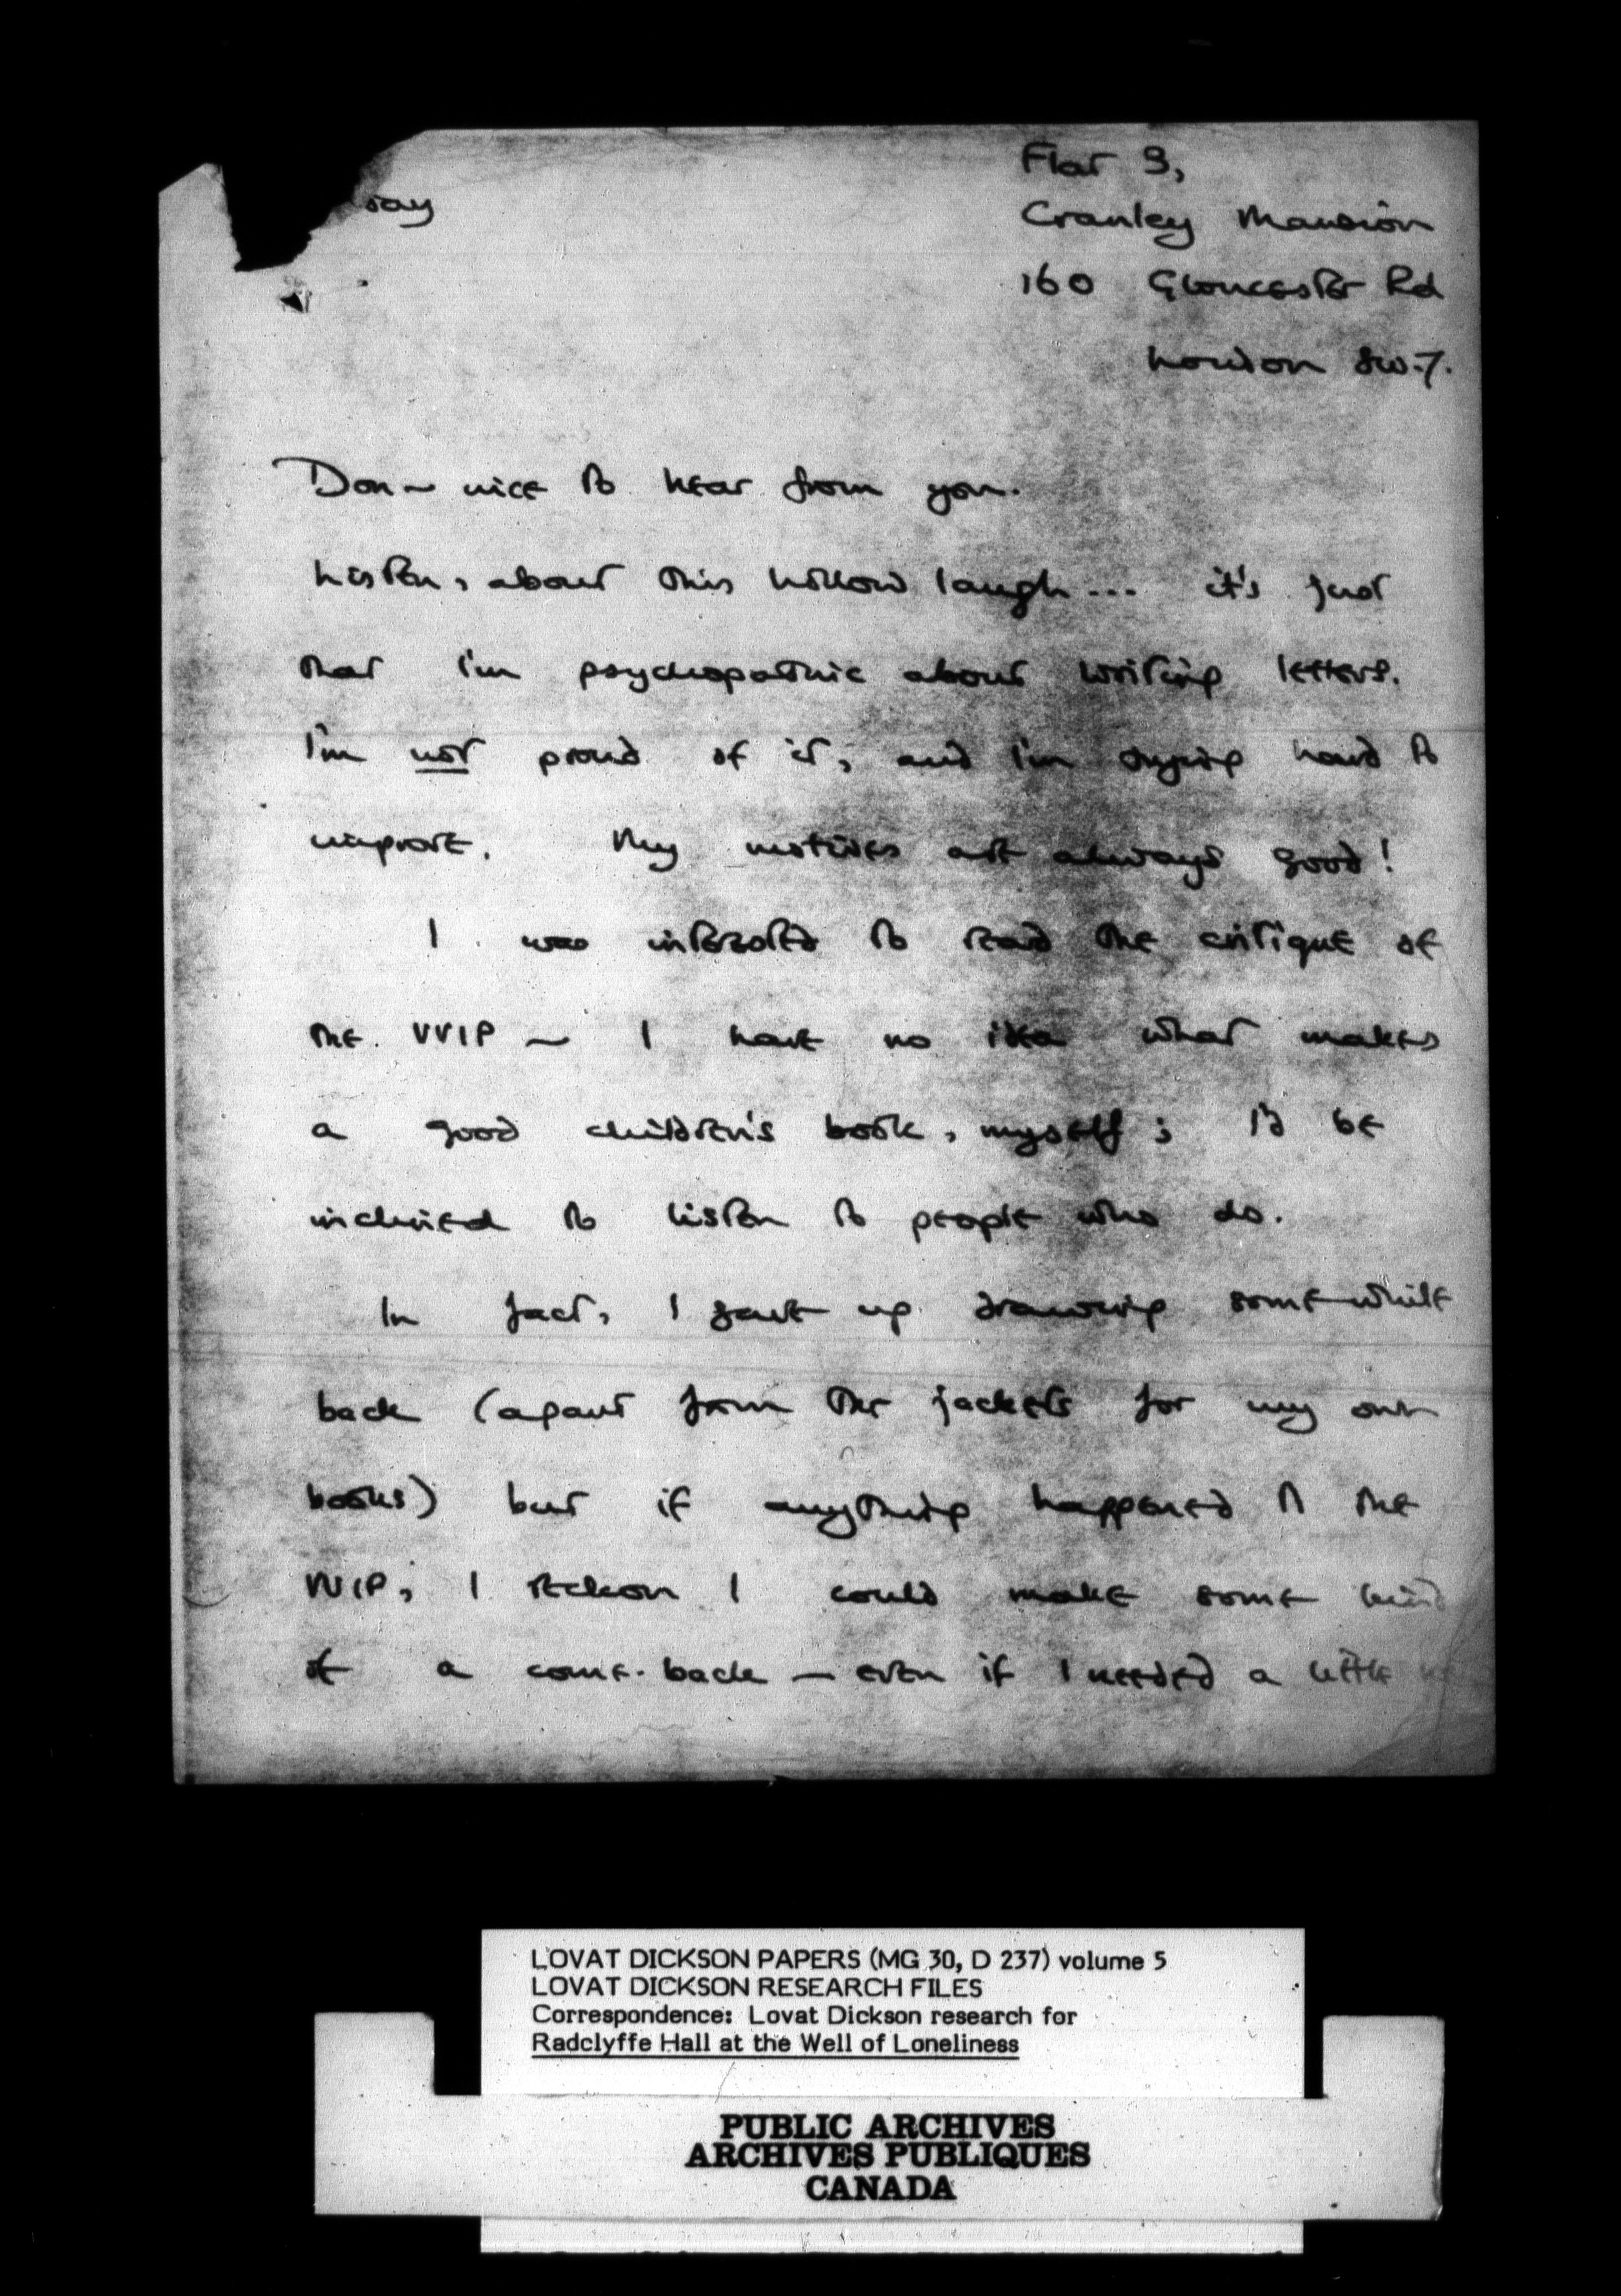 Flat 9,
say
Cranley Mansion
160 Gloucester Rd
London SW.7.
Don ~ nice to hear from you.
Listen, about this hollow laugh... it's just
that I'm psychopathic about writing letters.
I'm not proud of it, and I'm trying hard to
improve. My motives are always good!
I was interested to read the critique of
the VVIP ~ I have no idea what makes
a good children's book, myself; I'd be
inclined to listen to people who do.
In fact, I gave up drawing somewhile
back (apart from the jackets for my own
books) but if anything happened to the
VVIP, I reckon I could make some kind
of a come-back — even if I needed a little
LOVAT DICKSON PAPERS (MG 30, D 237) volume 5
LOVAT DICKSON RESEARCH FILES
Correspondence: Lovat Dickson research for
Radclyffe Hall at the Well of Loneliness
PUBLIC ARCHIVES
ARCHIVES PUBLIQUES
CANADA